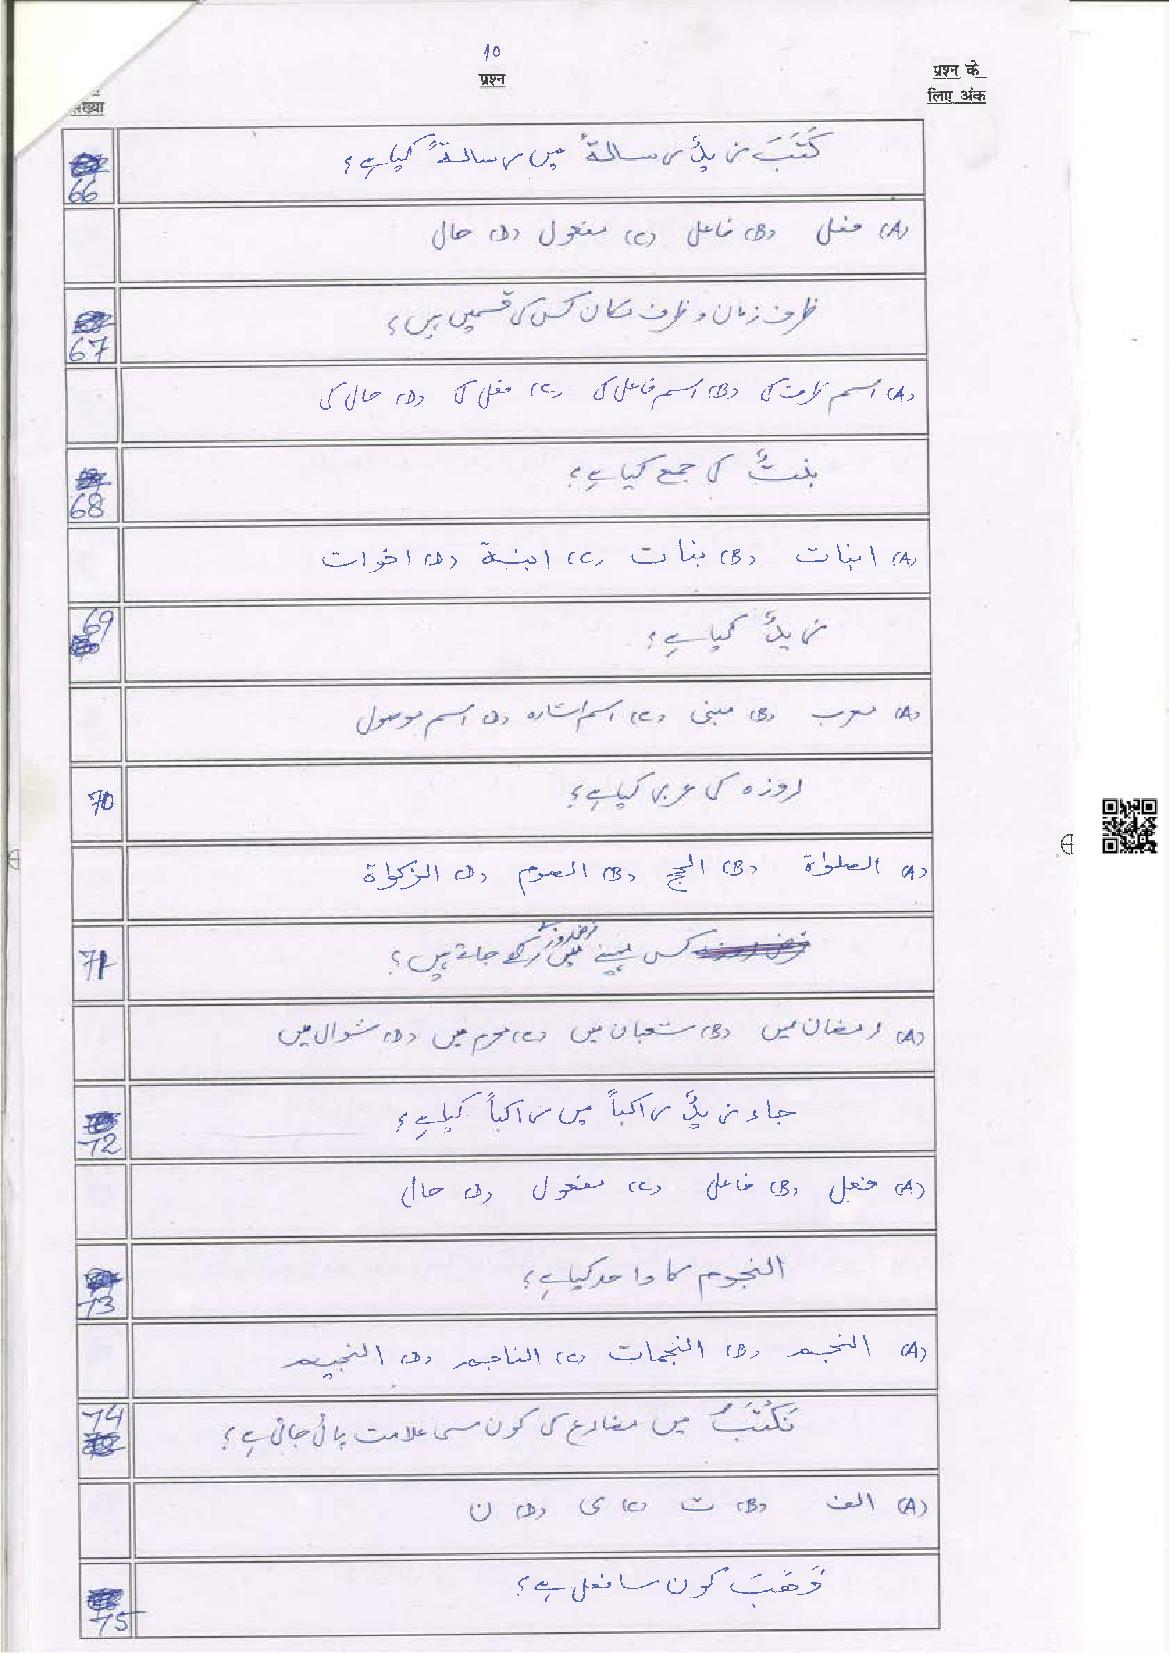 10
प्रश्न
प्रश्न के
लिए अंक
संख्या
66
كَتَبَ زيدٌ رسالةً میں رسالةً کیا ہے؟
(A) فعل (B) فاعل (C) مفعول (D) حال
67
ظرف زمان و ظرف مکان کس کی قسمیں ہیں؟
(A) اسم ظرف کی (B) اسم فاعل کی (C) فعل کی (D) حال کی
68
بنتٌ کی جمع کیا ہے؟
(A) ابنات (B) بنات (C) ابنة (D) اخوات
69
زیدٌ کیا ہے؟
(A) معرب (B) مبنی (C) اسم اشارہ (D) اسم موصول
70
روزہ کی عربی کیا ہے؟
(A) الصلواة (B) الحج (B) الصوم (D) الزکواة
71
کس مہینے میں فرض روزے رکھے جاتے ہیں؟
(A) رمضان میں (B) شعبان میں (C) محرم میں (D) شوال میں
72
جاء زیدٌ راکباً میں راکباً کیا ہے؟
(A) فعل (B) فاعل (C) مفعول (D) حال
73
النجوم کا واحد کیا ہے؟
(A) النجم (B) النجمات (C) الناجم (D) النجیم
74
نَكْتُبُ میں مضارع کی کون سی علامت پائی جاتی ہے؟
(A) الف (B) ت (C) ی (D) ن
75
وَهَبَ کون سا فعل ہے؟